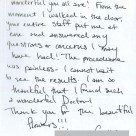 wonderful you all are. From the
moment I walked in the door,
your entire staff put me at
ease and answered any
questions or concerns I may
have had. The procedure
was painless. I cannot wait
to see the results. I am so
thankful that I found such
a wonderful Doctor!
Thank you for the beautiful
flowers.